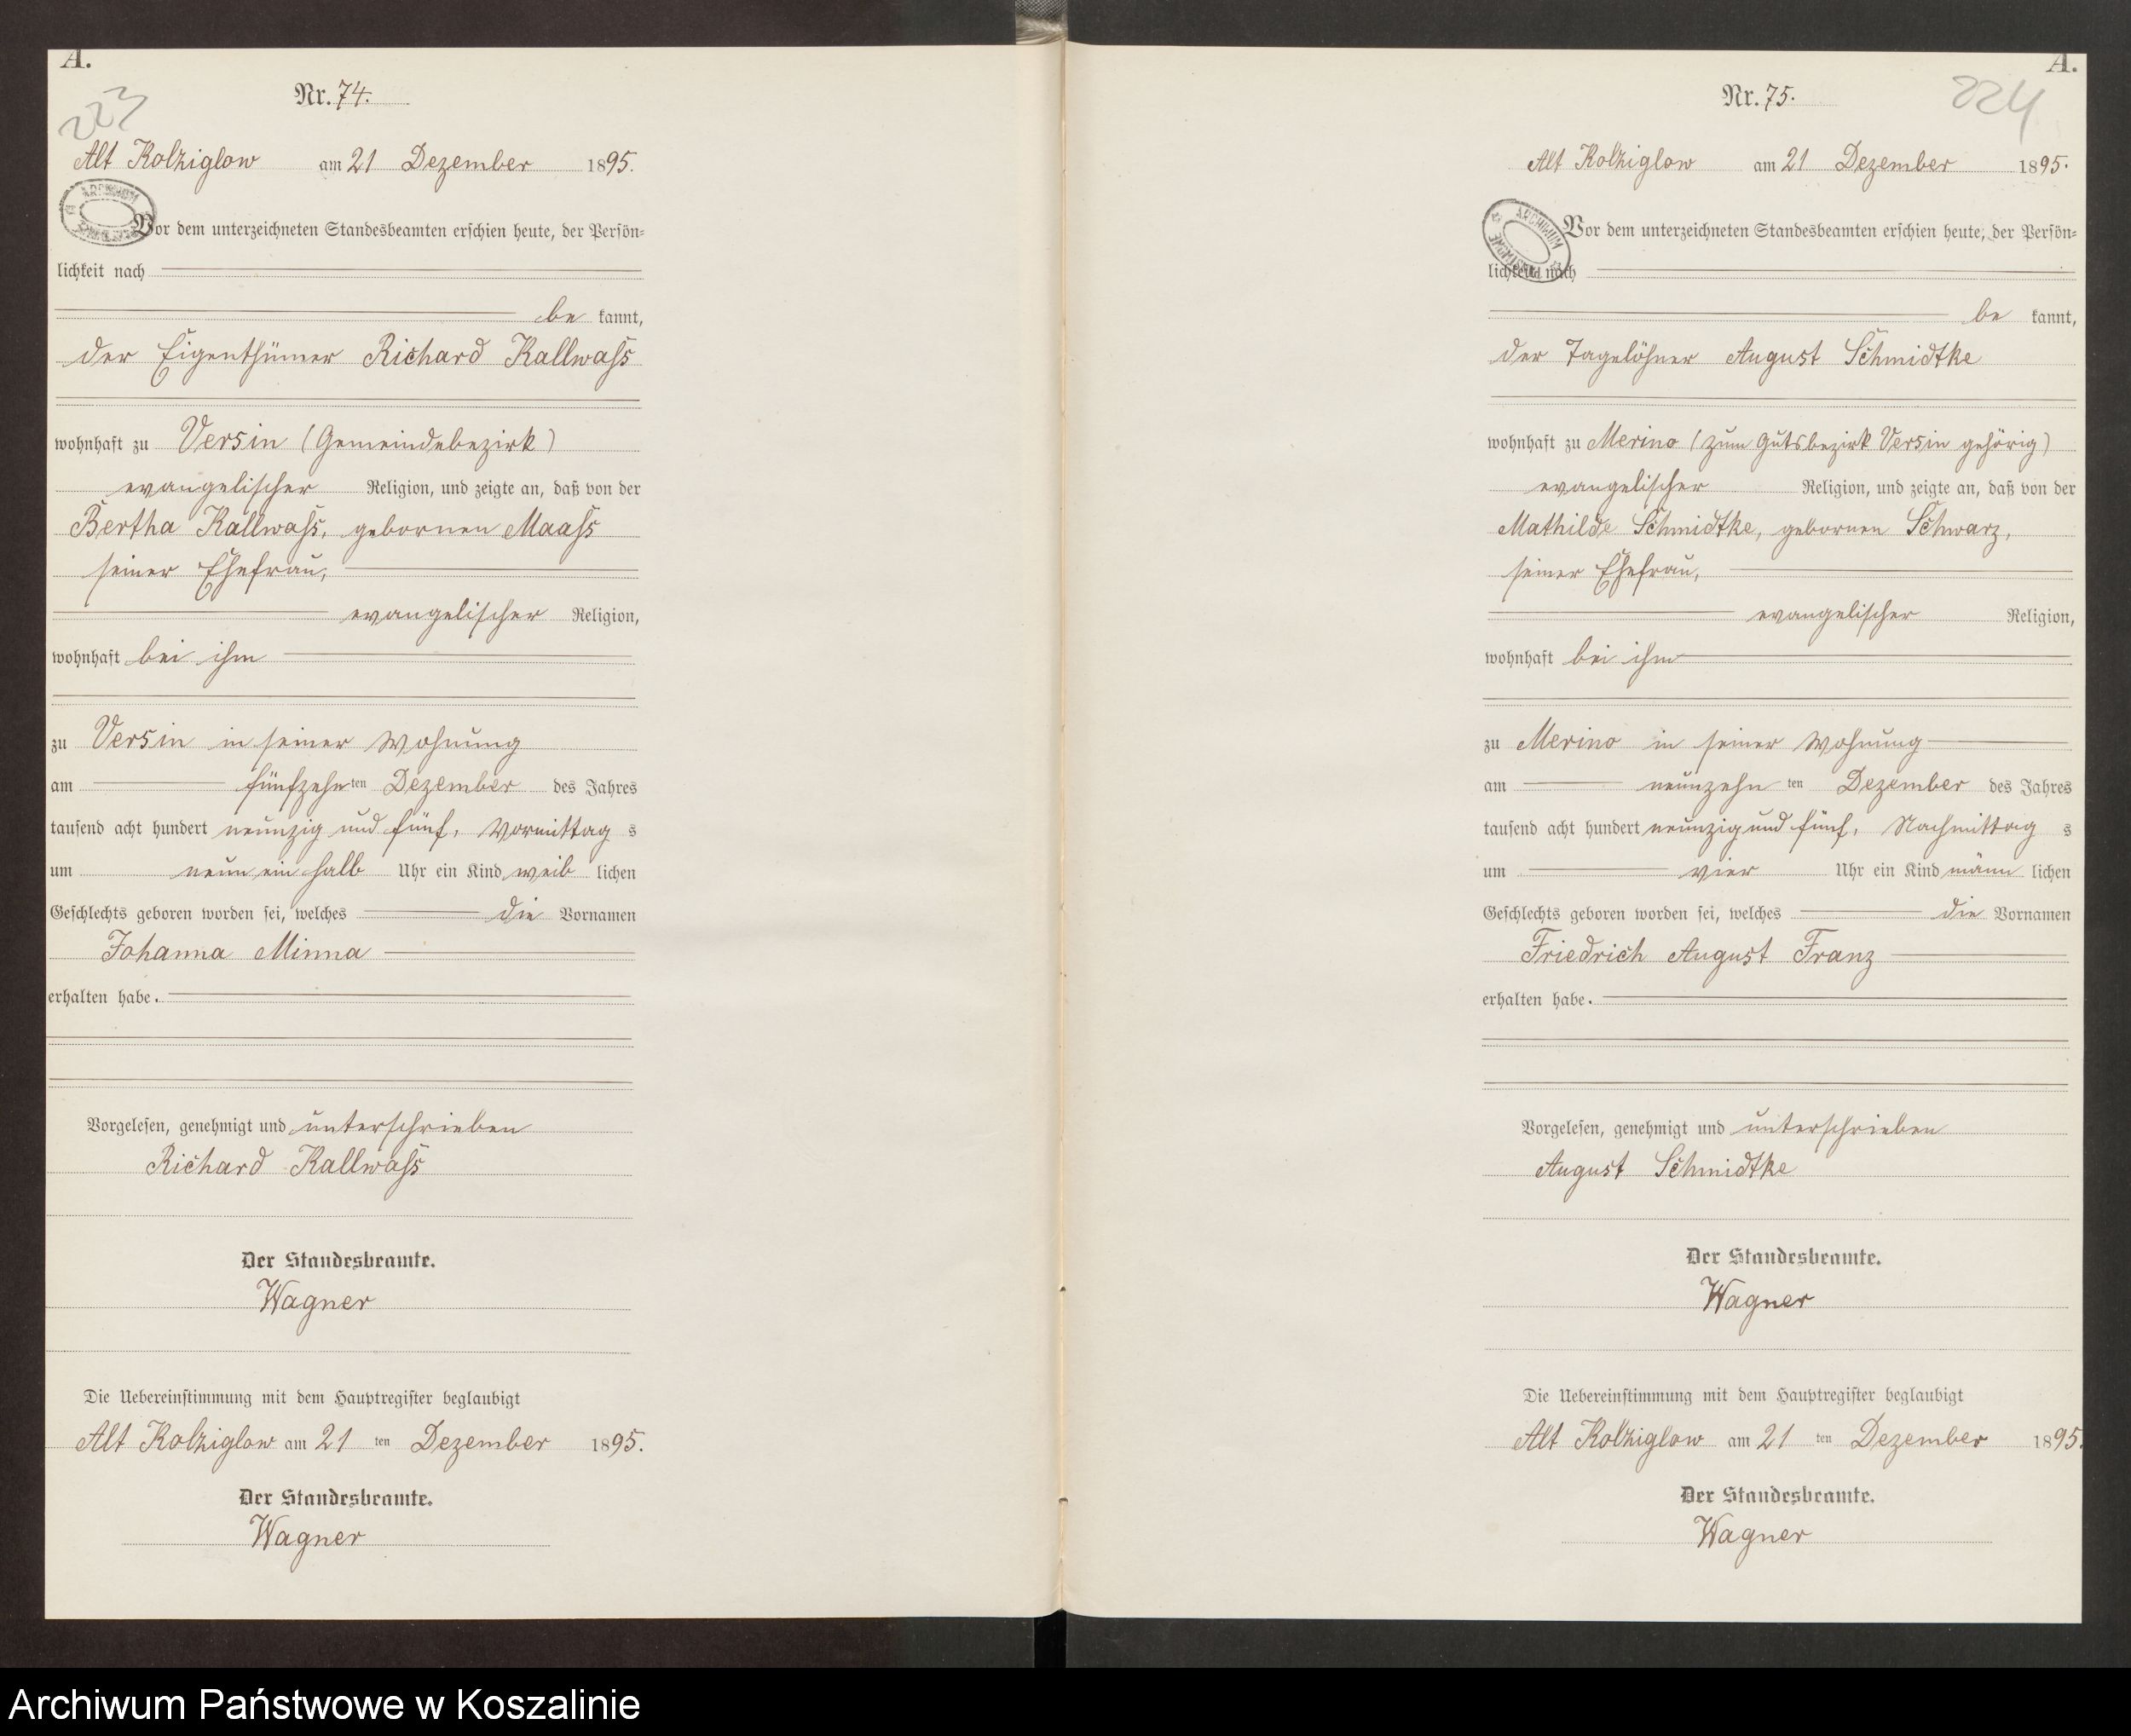 A.
223
Nr. 74.
Alt Kolziglow am 21 Dezember 1895.
ARCHIWUM
Vor dem unterzeichneten Standesbeamten erschien heute, der Persön=
lichkeit nach
be kannt,
der Eigenthümer Richard Kallwass
wohnhaft zu Versin (Gemeindebezirk)
evangelischer Religion, und zeigte an, daß von der
Bertha Kallwass, gebornen Maass
seiner Ehefrau,
evangelischer Religion,
wohnhaft bei ihm
zu Versin in seiner Wohnung
am fünfzehn ten Dezember des Jahres
tausend acht hundert neunzig und fünf, Vormittag s
um neun ein halb Uhr ein Kind weib lichen
Geschlechts geboren worden sei, welches die Vornamen
Johanna Minna
erhalten habe.
Vorgelesen, genehmigt und unterschrieben
Richard Kallwass
Der Standesbeamte.
Wagner
Die Uebereinstimmung mit dem Hauptregister beglaubigt
Alt Kolziglow am 21 ten Dezember 1895.
Der Standesbeamte.
Wagner
A.
224
Nr. 75.
Alt Kolziglow am 21 Dezember 1895.
ARCHIWUM
Vor dem unterzeichneten Standesbeamten erschien heute, der Persön=
lichkeit nach
be kannt,
der Tagelöhner August Schmidtke
wohnhaft zu Merino (zum Gutsbezirk Versin gehörig)
evangelischer Religion, und zeigte an, daß von der
Mathilde Schmidtke, gebornen Schwarz,
seiner Ehefrau,
evangelischer Religion,
wohnhaft bei ihm
zu Merino in seiner Wohnung
am neunzehn ten Dezember des Jahres
tausend acht hundert neunzig und fünf, Nachmittag s
um vier Uhr ein Kind männ lichen
Geschlechts geboren worden sei, welches die Vornamen
Friedrich August Franz
erhalten habe.
Vorgelesen, genehmigt und unterschrieben
August Schmidtke
Der Standesbeamte.
Wagner
Die Uebereinstimmung mit dem Hauptregister beglaubigt
Alt Kolziglow am 21 ten Dezember 1895.
Der Standesbeamte.
Wagner
Archiwum Państwowe w Koszalinie